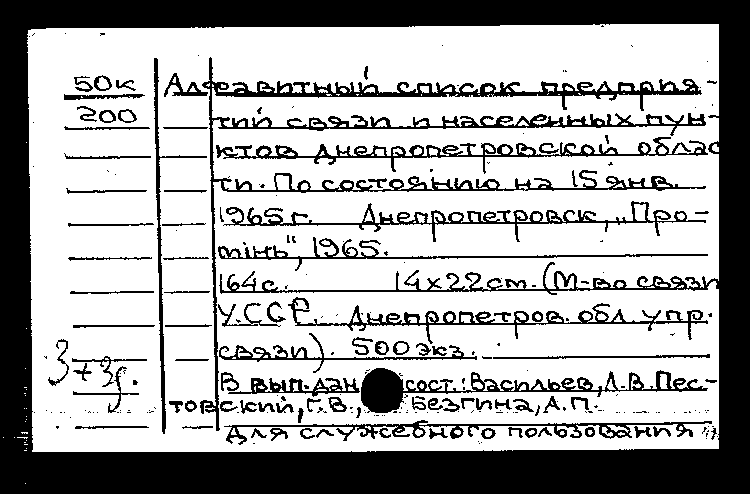 50к Алфавитный список предприя-
200 тий связи и населенных пун-
ктов Днепропетровской облас
ти. По состоянию на 15 янв.
1965 г. Днепропетровск, „Про-
мінь", 1965.
164 с. 14×22 см. (М-во связи
У.ССР. Днепропетров. обл. упр.
связи). 500 экз.
3+3д.
В вып. дан. сост.: Васильев, Л.В. Пес-
товский, Г.В., Безгина, А.П.
Для служебного пользования